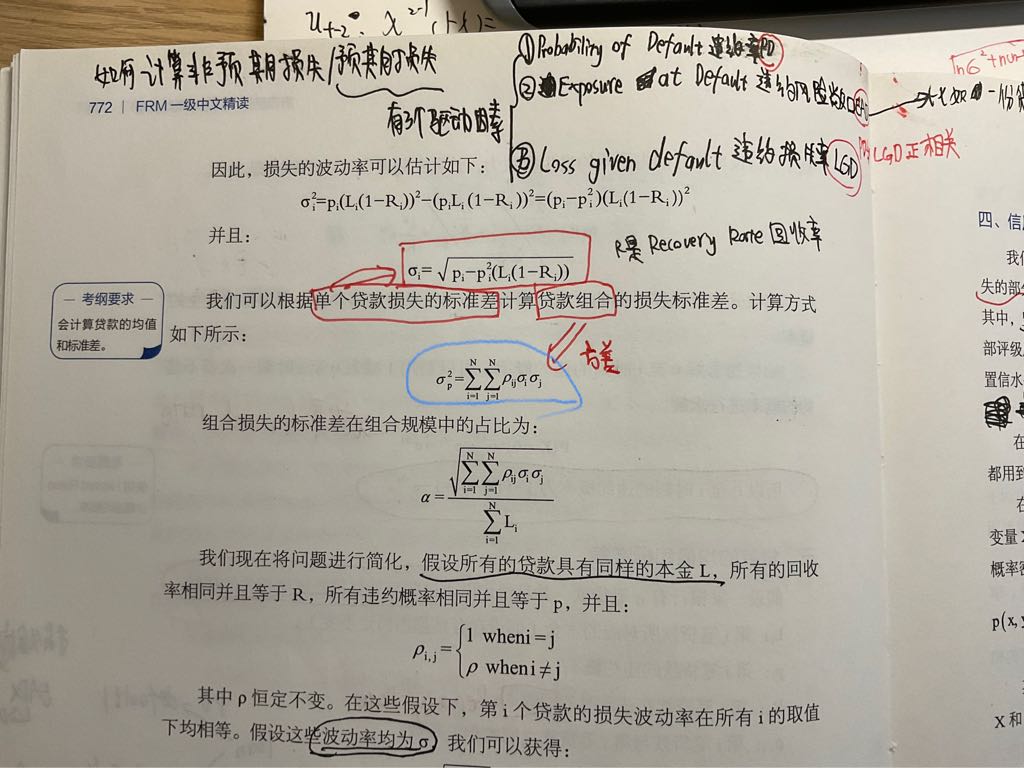 u_{t-2}. x^{2-1}(1-x)=
如何计算非预期损失/预期损失
有3个驱动因素
① Probability of Default 违约率 PD
② Exposure at Default 违约风险敞口
③ Loss given default 违约损失率 LGD
LGD正相关
772 | FRM 一级中文精读
因此，损失的波动率可以估计如下：
σ_i^2=p_i(L_i(1-R_i))^2-(p_iL_i(1-R_i))^2=(p_i-p_i^2)(L_i(1-R_i))^2
并且：
R是 Recovery Rate 回收率
σ_i=√(p_i-p_i^2(L_i(1-R_i)))
考纲要求
会计算贷款的均值
和标准差。
我们可以根据单个贷款损失的标准差计算贷款组合的损失标准差。计算方式
如下所示：
方差
σ_p^2=∑_{i=1}^{N}∑_{j=1}^{N}ρ_{ij}σ_iσ_j
组合损失的标准差在组合规模中的占比为：
α=√(∑_{i=1}^{N}∑_{j=1}^{N}ρ_{ij}σ_iσ_j)/∑_{i=1}^{N}L_i
我们现在将问题进行简化，假设所有的贷款具有同样的本金 L，所有的回收
率相同并且等于 R，所有违约概率相同并且等于 p，并且：
ρ_{i,j}={1 wheni=j
ρ wheni≠j
其中 ρ 恒定不变。在这些假设下，第 i 个贷款的损失波动率在所有 i 的取值
下均相等。假设这些波动率均为 σ，我们可以获得：
四、信
我们
失的部
其中，
部评级
置信水
在
都用到
在
变量 X
概率密
p(x, y
X 和